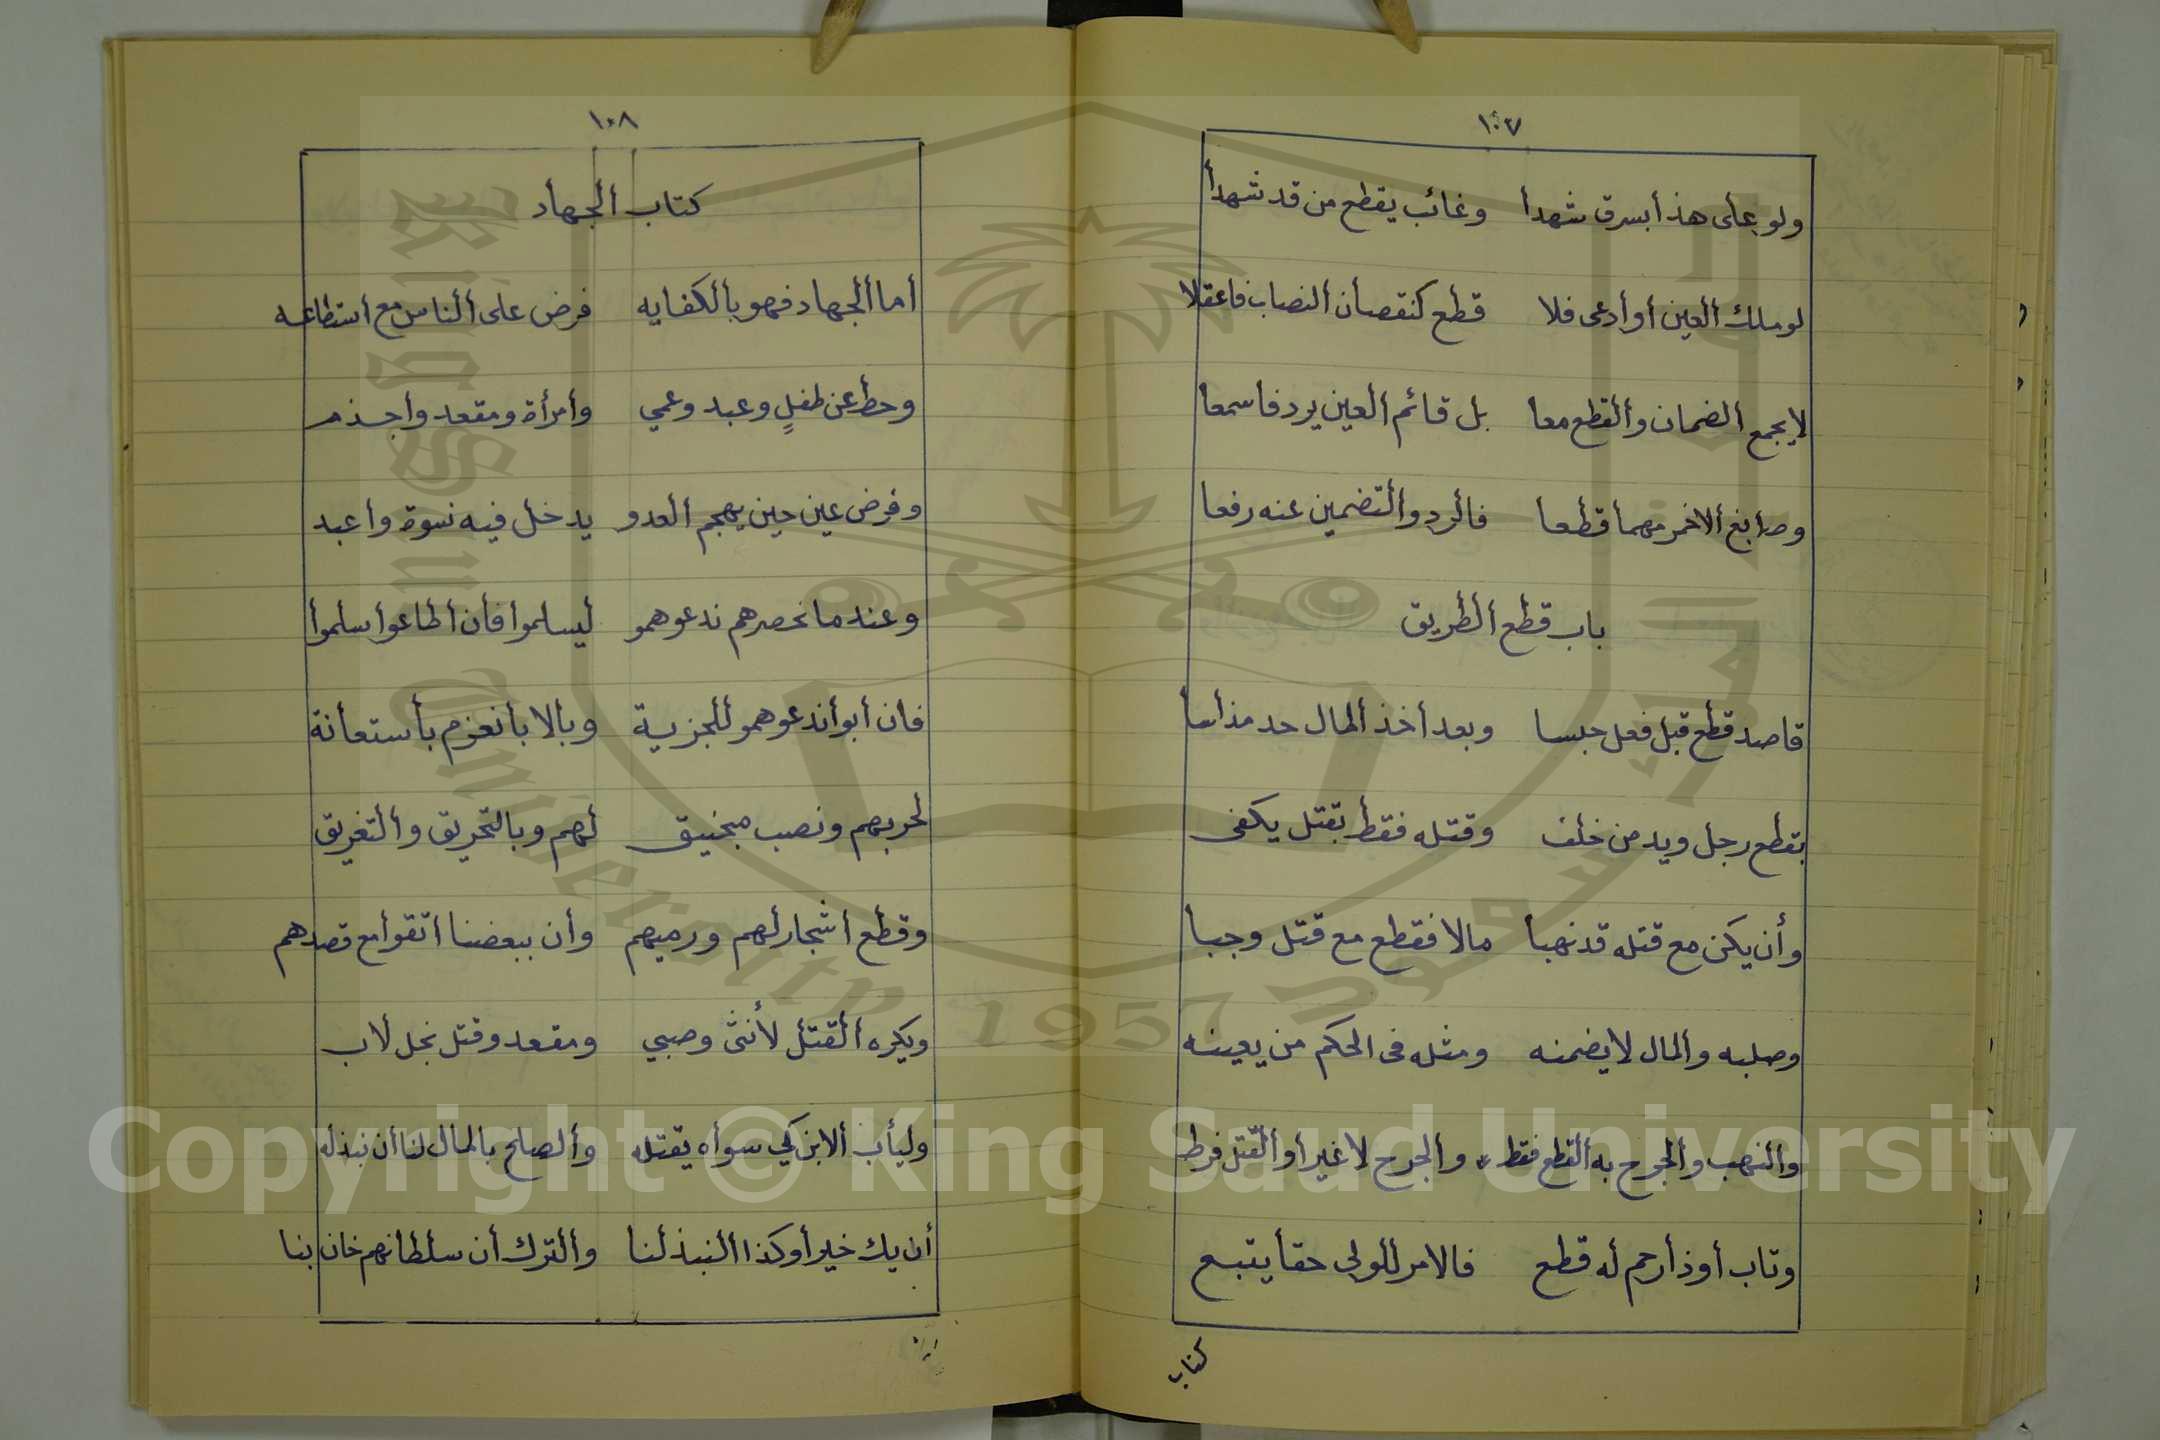 ١٠٧
ولو على هذا بسرق شهدا وغائب يقطع من قد شهدا
لو ملك العين أو أدعى فلا قطع كنقصان النصاب فاعقلا
لا يجمع الضمان والقطع معا بل قائم العين يرد فاسمعا
وصابغ الاخمر مهما قطعا فالرد والتضمين عنه رفعا
باب قطع الطريق
قاصد قطع قبل فعل حبسا وبعد أخذ المال حد مذ أسا
بقطع رجل ويد من خلف وقتله فقط بقتل يكفى
وأن يكن مع قتله قد نهبا مالا فقطع مع قتل وجبا
وصلبه والمال لا يضمنه ومثله فى الحكم من يعينه
والنهب والجرح به القطع فقط والجرح لا غير أو القتل فرط
وتاب أو ذا رحم له قطع فالامر للولى حقا يتبع
كتاب
١٠٨
كتاب الجهاد
أما الجهاد فهو بالكفايه فرض على الناس مع استطاعه
وحط عن طفلٍ وعبد وعمي وامرأة ومقعد واجذم
وفرض عين حين يهجم العدو يدخل فيه نسوة واعبد
وعند ما نحصرهم ندعوهمو ليسلموا فأن أطاعوا سلموا
فان أبوا ندعوهمو للجزية وبالابا نعزم بأستعانة
لحربهم ونصب منجنيق لهم وبالتحريق والتغريق
وقطع اشجار لهم ورميهم وأن ببعضنا اتقوا مع قصدهم
ويكره القتل لأنثى وصبي ومقعد وقتل نجل لاب
وليأب الابن كي سواه يقتله والصلح بالمال لنا أن نبذله
أن يك خيرا وكذا النبذ لنا والترك أن سلطانهم خان بنا
King Saud University
1957
Copyright © King Saud University